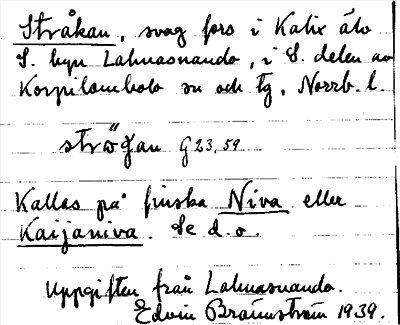 Stråkan, svag fors i Kalix älv
S. byn Lahnasuando, i S. delen av
Korpilombolo sn och tg, Norrb. l.
G 23, 59
Kallas på finska Niva eller
Kaijaniva. Se d. o.
Uppgiften från Lahnasuando.
Edvin Brännström 1939.